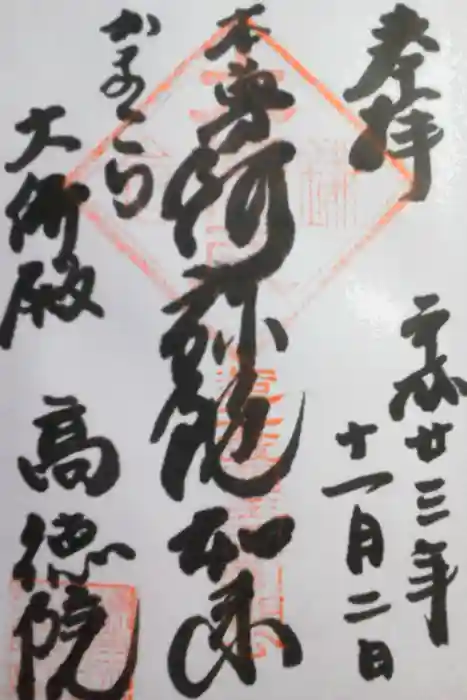 奉拝
平成廿三年
十一月二日
本尊阿弥陀如来
かまくら
大佛殿
高徳院